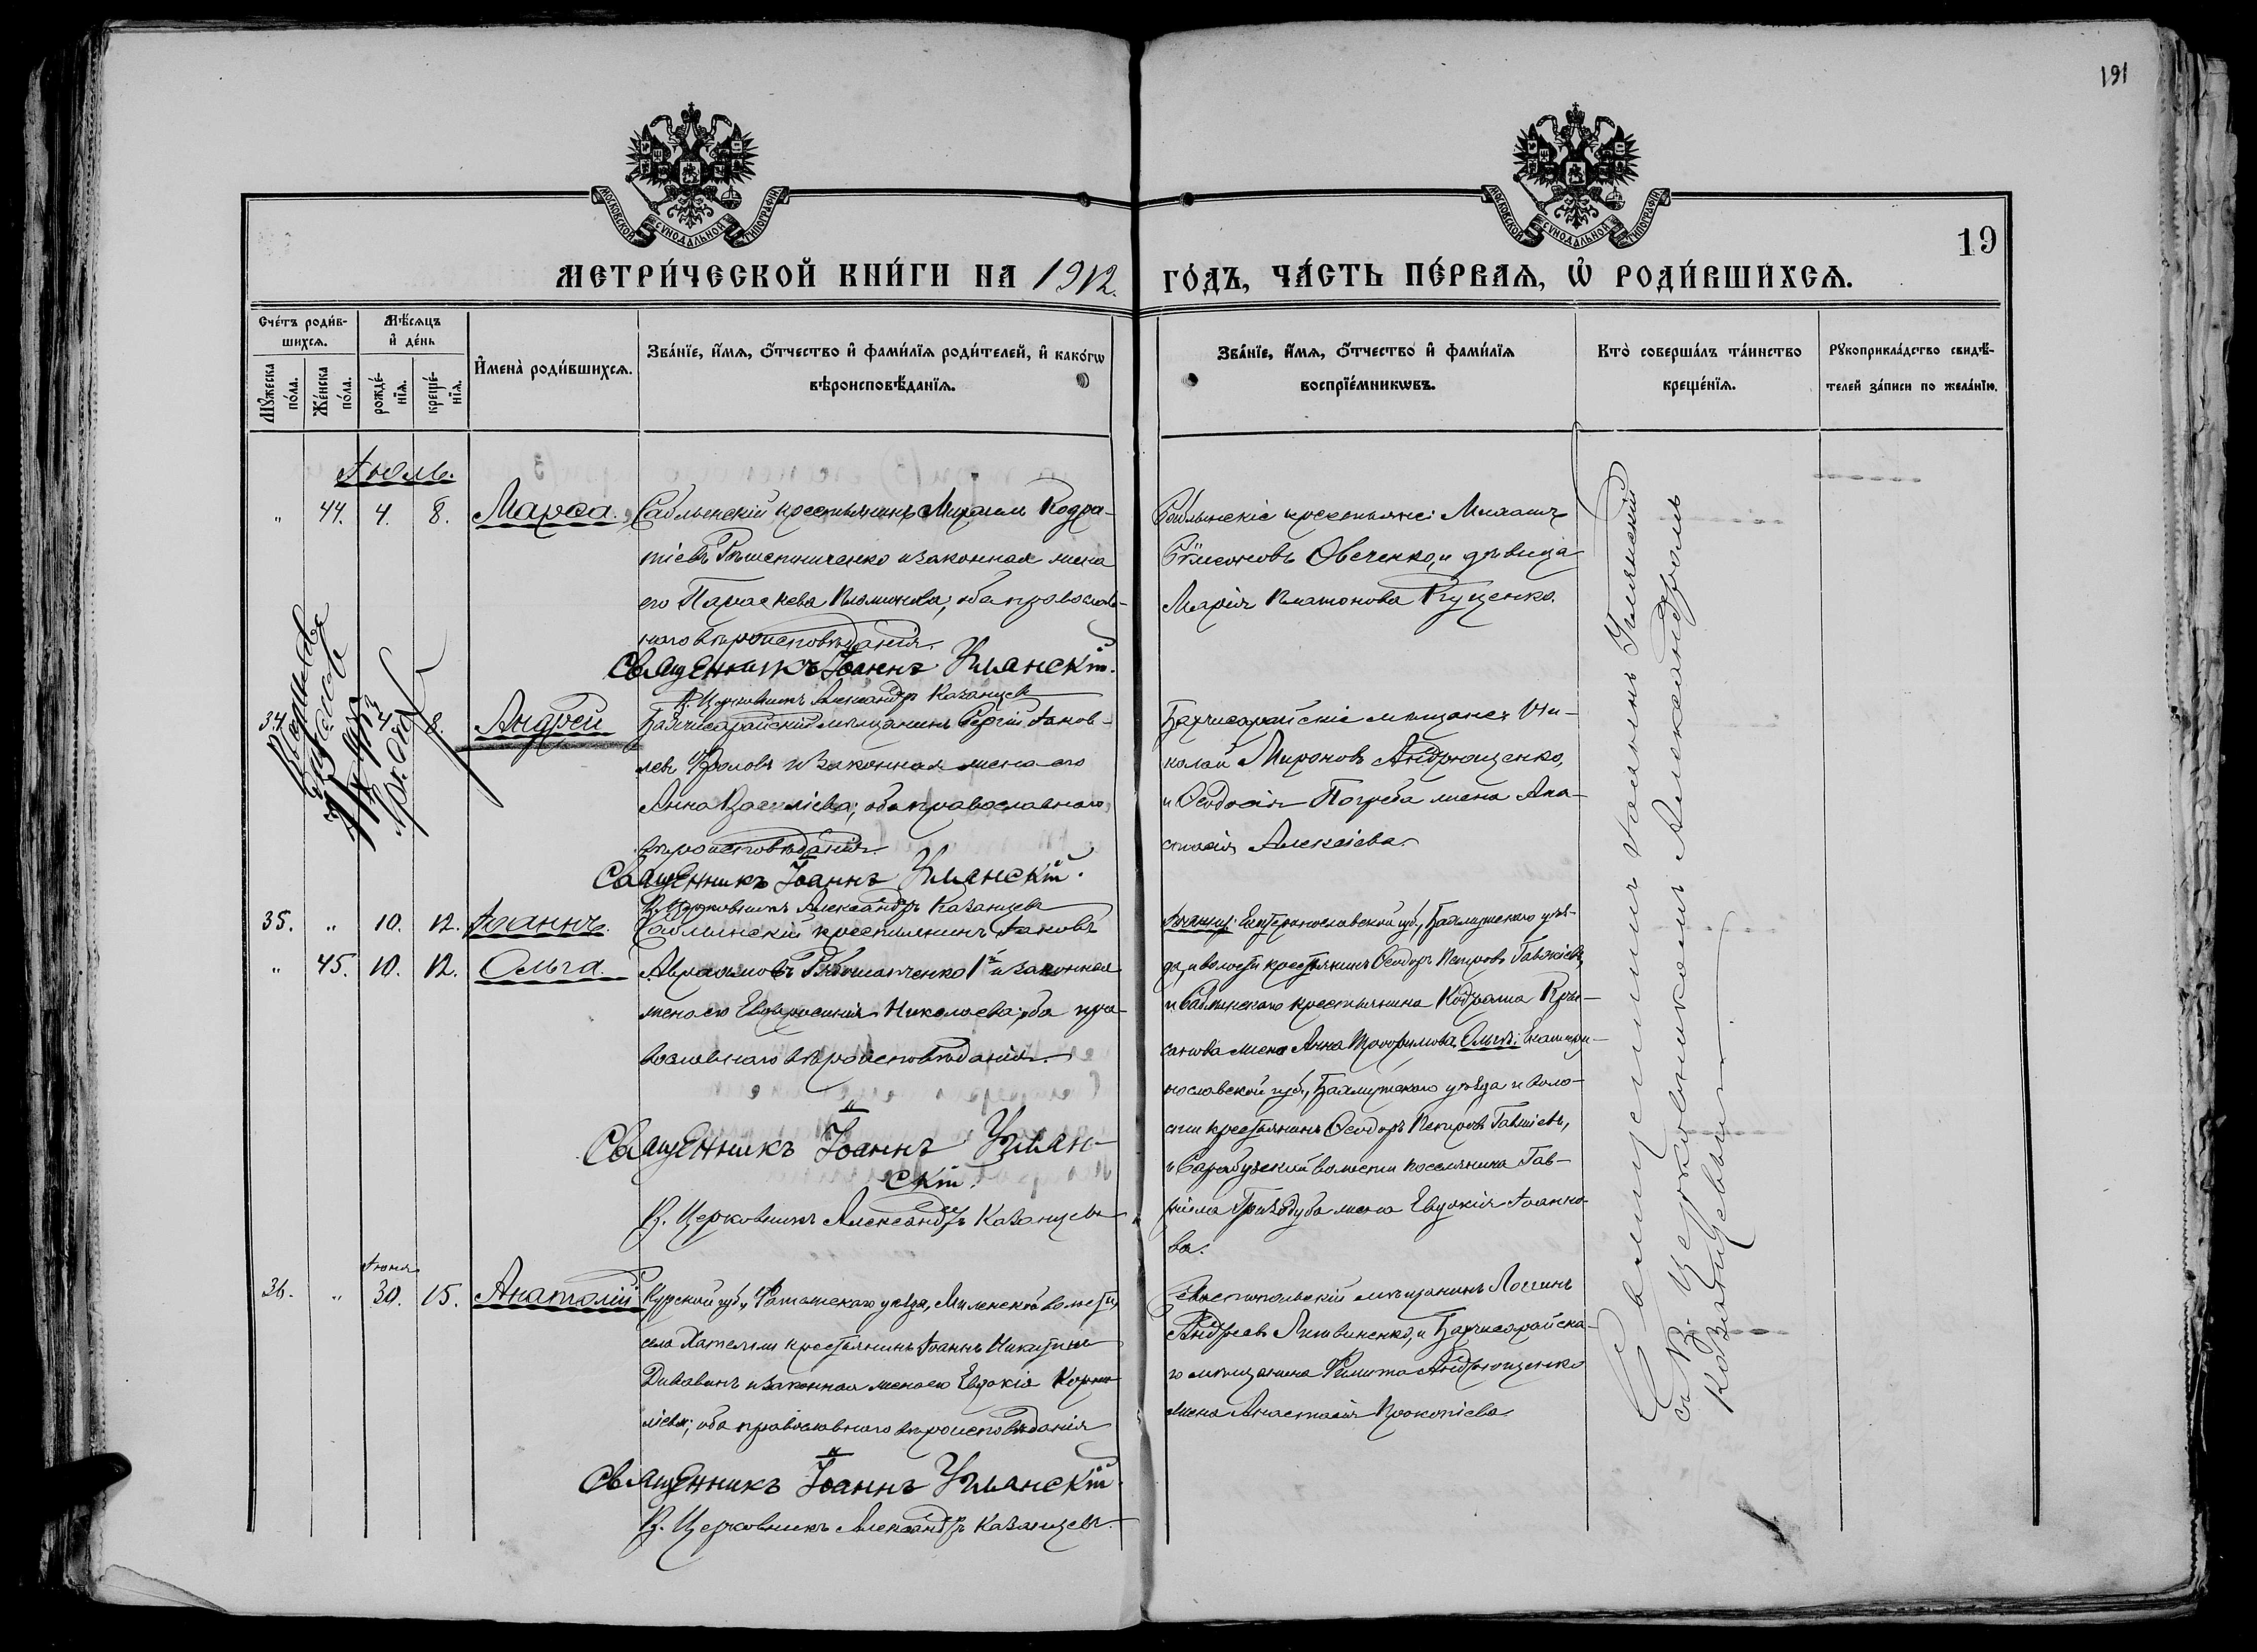 191
МОСКОВСКОЙ СѴНОДАЛЬНОЙ ТИПОГРАФІИ
МОСКОВСКОЙ СѴНОДАЛЬНОЙ ТИПОГРАФІИ
19
МЕТРИ́ЧЕСКОЙ КНИ́ГИ НА 1912.
ГО́ДЪ, ЧА́СТЬ ПЕ́РВАѦ, Ѽ РОДИ́ВШИХСѦ.
Сче́тъ роди́в-
шихсѧ.
Мꙋ́жеска по́ла.
Же́нска по́ла.
Мѣ́сѧцъ
и҆ де́нь
рожде́-
нїѧ.
креще́-
нїѧ.
И҆мена̀ роди́вшихсѧ.
Зва́нїе, и҆́мѧ, ѻ҆́тчество и҆ фами́лїѧ роди́телей, и҆ како́гѡ
вѣроисповѣ́данїѧ.
Зва́нїе, и҆́мѧ, ѻ҆́тчество и҆ фами́лїѧ
воспрїе́мникѡвъ.
Кто̀ соверша́лъ та́инство
креще́нїѧ.
Рꙋкоприкла́дство свидѣ́-
телей за́писи по жела́нїю.
Іюль.
" 44. 4. 8. Марѳа. Саблынскій крестьянинъ Михаилъ Кодра-
тіевъ Рѣшетниченко и законная жена
его Параскева Платонова; оба православ-
наго вѣроисповѣданія.
Священникъ Іоаннъ Уманскій.
В. Церковникъ Александръ Казанцевъ
Саблынскіе крестьяне: Михаилъ
Сѵмеоновъ Овсченко, и дѣвица
Марія Платонова Куценко.
34 4 8. Андрей Бахчисарайскій мѣщанинъ Сергій Іаков-
левъ Фроловъ и законная жена его
Анна Василіева; оба православнаго
вѣроисповѣданія.
Священникъ Іоаннъ Уманскій.
В. Церковникъ Александръ Казанцевъ
Бахчисарайскіе мѣщане: Ни-
колай Мироновъ Андрющенко,
и Ѳеодосія Погреба жена Ана-
стасія Алексіева.
35. " 10. 12. Іоаннъ. Саблынскій крестьянинъ Іаковъ
" 45. 10. 12. Ольга. Авраамовъ Рябошапченко 1й и законная
жена его Евфросинія Николаева; оба пра-
вославнаго вѣроисповѣданія.
Священникъ Іоаннъ Уман-
скій.
В. Церковникъ Александръ Казанцевъ
Іоанна: Екатеринославской губ., Бахмутскаго уѣз-
да, и волости крестьянинъ Ѳеодоръ Петровъ
и Саблынскаго крестьянина Кодрата
жена Анна Трофимова. Ольги: Екатери-
нославской губ., Бахмутскаго уѣзда и воло-
сти крестьянинъ Ѳеодоръ Петровъ
и Сарабузской волости поселянина Гав-
ріила жена Евдокія Іоанно-
ва.
Іюня
36. " 30. 15. Анатолій Курской губ., Фатежскаго уѣзда, Миленской волости,
села крестьянинъ Іоаннъ Никитинъ
и законная жена его Евдокія Корни-
ліева; оба православнаго вѣроисповѣданія
Священникъ Іоаннъ Уманскій.
В. Церковникъ Александръ Казанцевъ.
Севастопольскій мѣщанинъ Логинъ
Андреевъ Литвиненко, и Бахчисарайска-
го мѣщанина Филиппа Андрющенко
жена Анастасія Прокопіева.
Священникъ Іоаннъ Уманскій
съ В. Церковникомъ Александромъ
Казанцевымъ